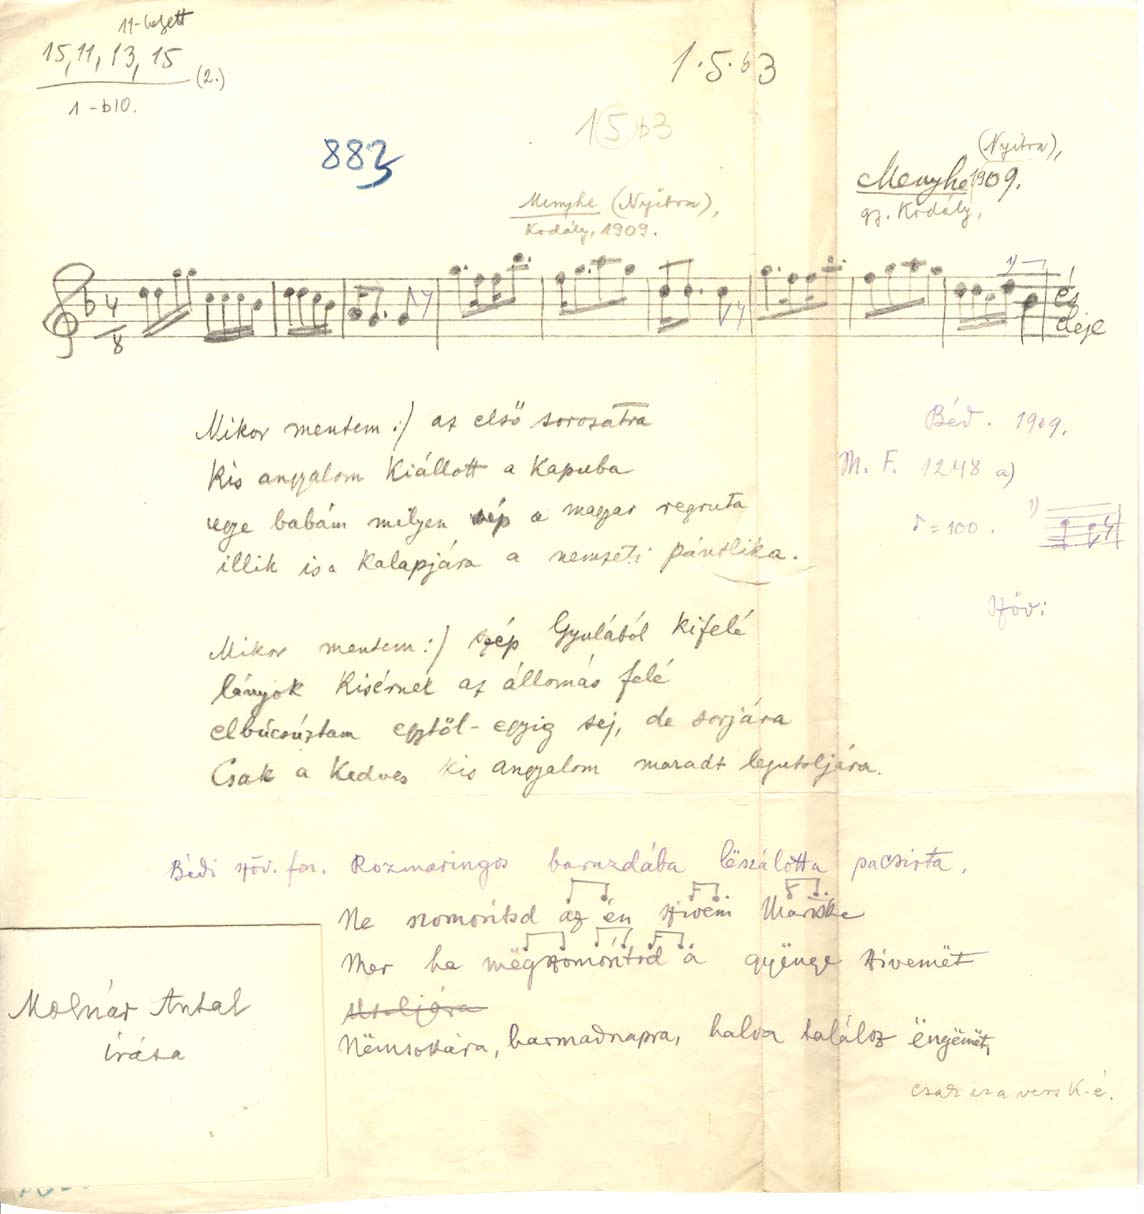 11-bezett
15, 11, 13, 15 (2.)
1 - b10.
1·5·b3
1 5 b3
883
(Nyitra),
Menyhe 1909.
gy. Kodály,
Menyhe (Nyitra),
Kodály, 1909.
4
8
1)
és
eleje
Mikor mentem :/ az első sorozatra
Kis angyalom Kiállott a Kapuba
ugye babám milyen szép a magyar regruta
illik is a Kalapjára a nemzeti pántlika.
Béd. 1909.
M. F. 1248 a)
♪ = 100. 1)
Szöv:
Mikor mentem :/ szép Gyulából kifelé
lányok Kisérnek az állomás felé
elbúcsúztam egytől-egyig sej, de sorjára
Csak a Kedves kis angyalom maradt legutoljára.
Bédi szöv. for. Rozmaringos barazdába lëszálotta pacsirta,
Ne szomorítsd az én szivem Mariska
Mer ha mëgszomorítod a gyënge szivemët
Nëmsokára, harmadnapra, halva találsz ëngëmët,
csak ez a vers K-é.
Molnár Antal
írása